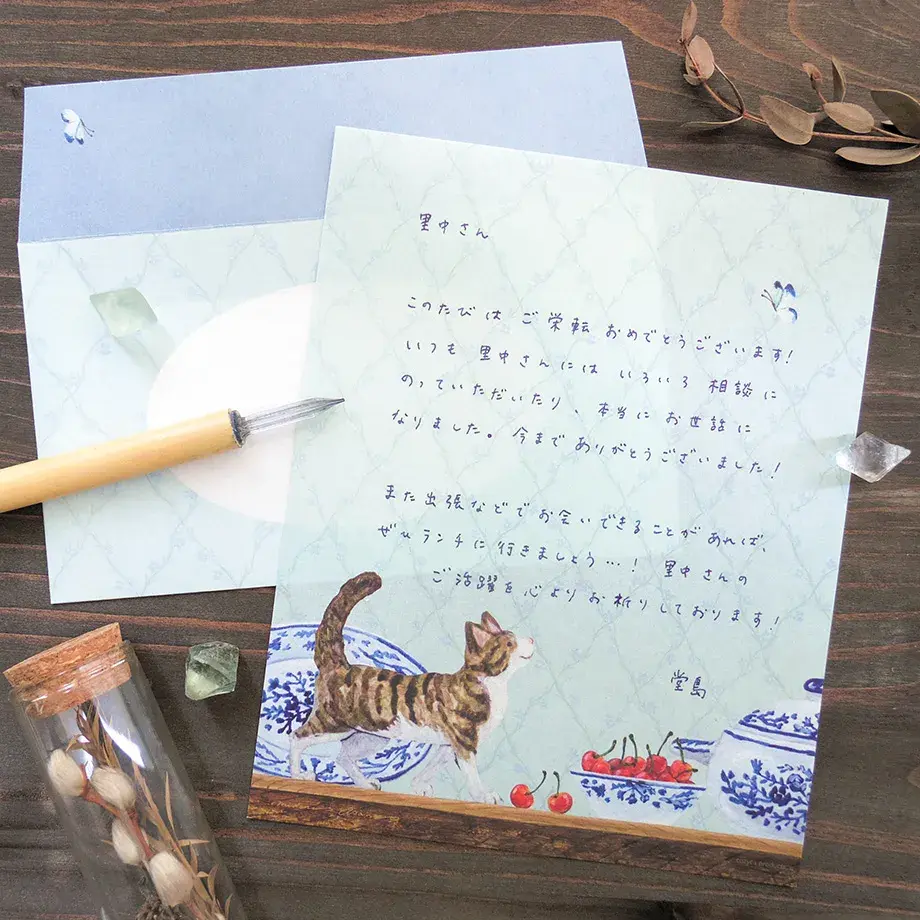 里中さん
このたびは ご栄転 おめでとうございます!
いつも 里中さんには いろいろ 相談に
のっていただいたり、本当に お世話に
なりました。今まで ありがとうございました!
また出張などで お会いできることがあれば、
ぜひランチに行きましょう…! 里中さんの
ご活躍を心より お祈りしております!
堂島